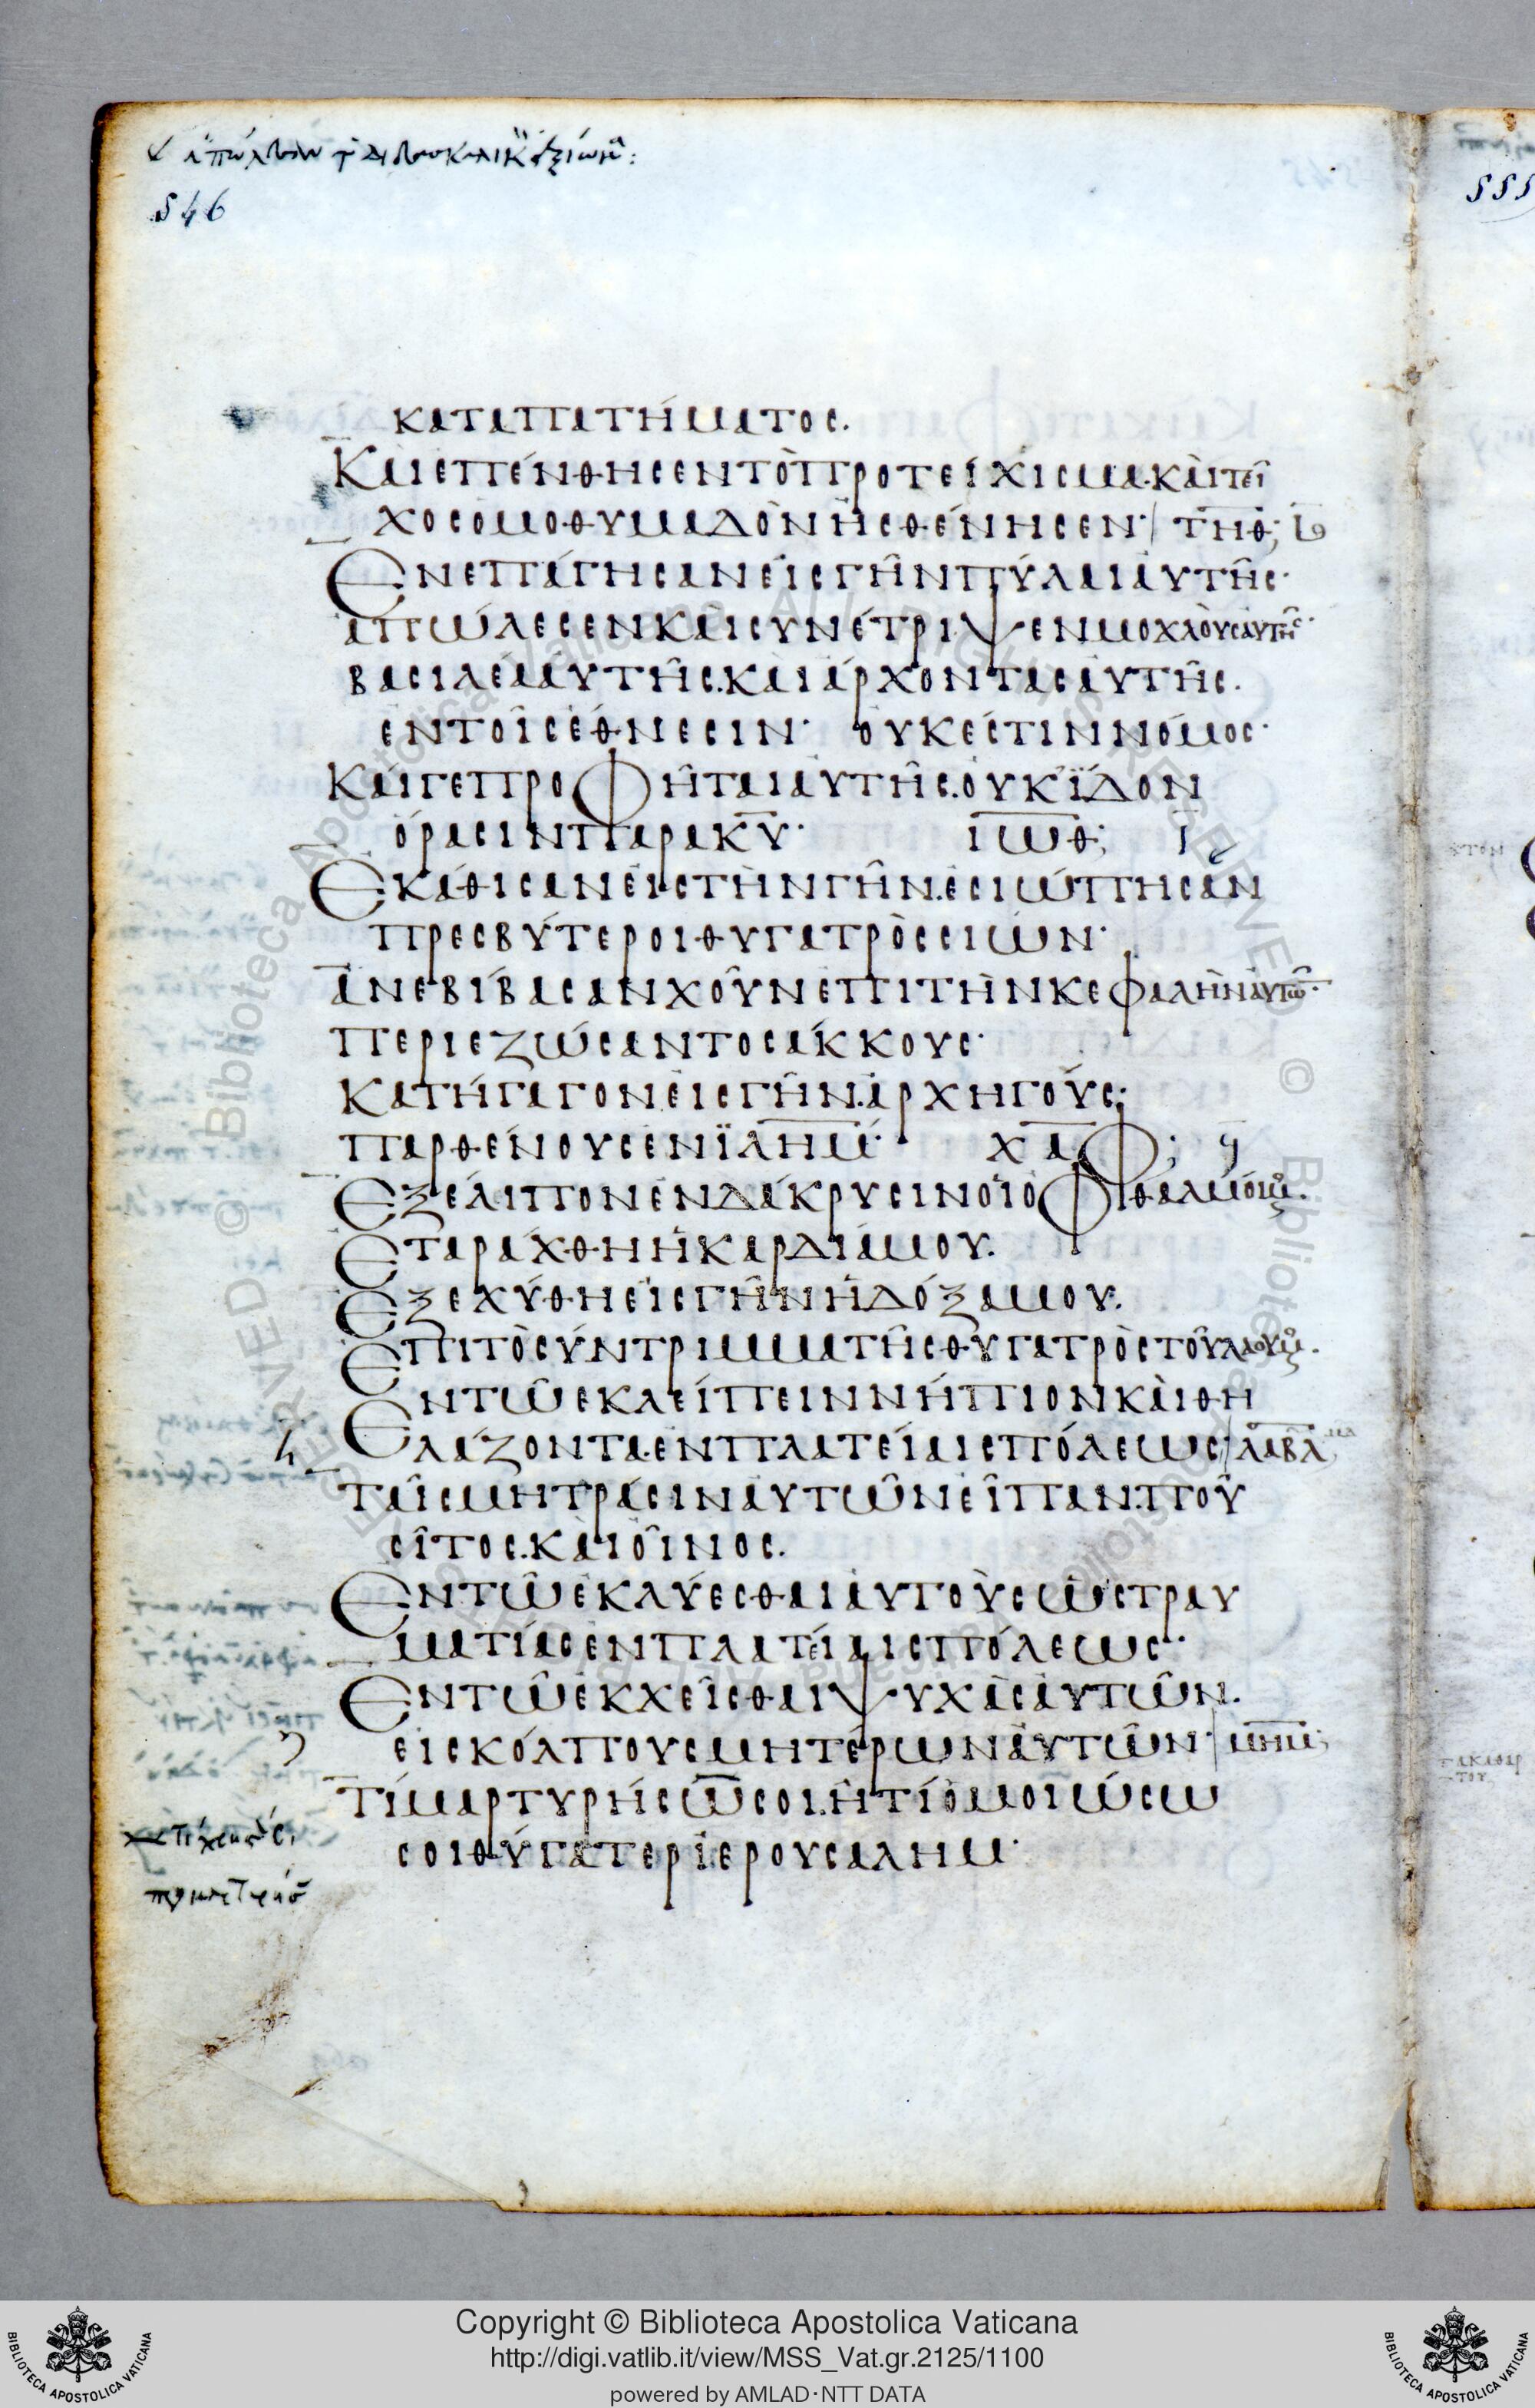 546
555
καταπατήματος.
Καὶ ἐπένθησεν τὸ προτείχισμα. καὶ τεῖ
χος ὁμοθυμαδὸν ἠσθένησεν· τηθ;
Ενεπάγησαν εἰς γῆν πύλαι αὐτῆς·
ἀπώλεσεν καὶ συνέτριψεν μοχλοὺς αὐτῆς·
βασιλέα αὐτῆς. καὶ ἄρχοντας αὐτῆς.
ἐν τοῖς ἔθνεσιν· οὐκ ἔστιν νόμος·
Καί γε προφῆται αὐτῆς. οὐκ ἴδον
ὅρασιν παρα κ̅υ̅· ιωθ; ι
Εκάθισαν εἰς τὴν γῆν. ἐσιώπησαν
πρεσβύτεροι θυγατρὸς σιών·
ἀνεβίβασαν χοῦν ἐπι τὴν κεφαλὴν αὐτῶ̅·
περιεζώσαντο σάκκους·
Κατήγαγον εἰς γῆν. ἀρχηγούς;
παρθένους ἐν ϊ̅λ̅η̅μ̅· χαφ;
Εξέλιπον ἐν δάκρυσιν οἱ ὀφθαλμοί μου.
Εταράχθη ἡ καρδία μου.
Εξεχύθη εἰς γῆν ἡ δόξα μου.
Επι τὸ σύντριμμα τῆς θυγατρὸς τοῦ λαοῦ μου.
Εν τῶ εκλείπειν νήπιον καὶ θη
λάζοντα. ἐν πλατείαις πόλεως λαβδ
Ταῖς μητράσιν αὐτῶν εἶπαν. ποῦ
σῖτος. καὶ οἶνος.
Εν τῶ ἐκλύεσθαι αὐτοὺς ὡς τραυ
ματίας ἐν πλατείαις πόλεως·
Εν τῶ ἐκχεῖσθαι ψυχὰς αὐτῶν.
εἰς κόλπους μητέρων αὐτῶν· μημ;
Τί μαρτυρήσω σοι. ἢ τί ὁμοιώσω
σοι θύγατερ ἱερουσαλημ·
Copyright © Biblioteca Apostolica Vaticana
http://digi.vatlib.it/view/MSS_Vat.gr.2125/1100
powered by AMLAD·NTT DATA